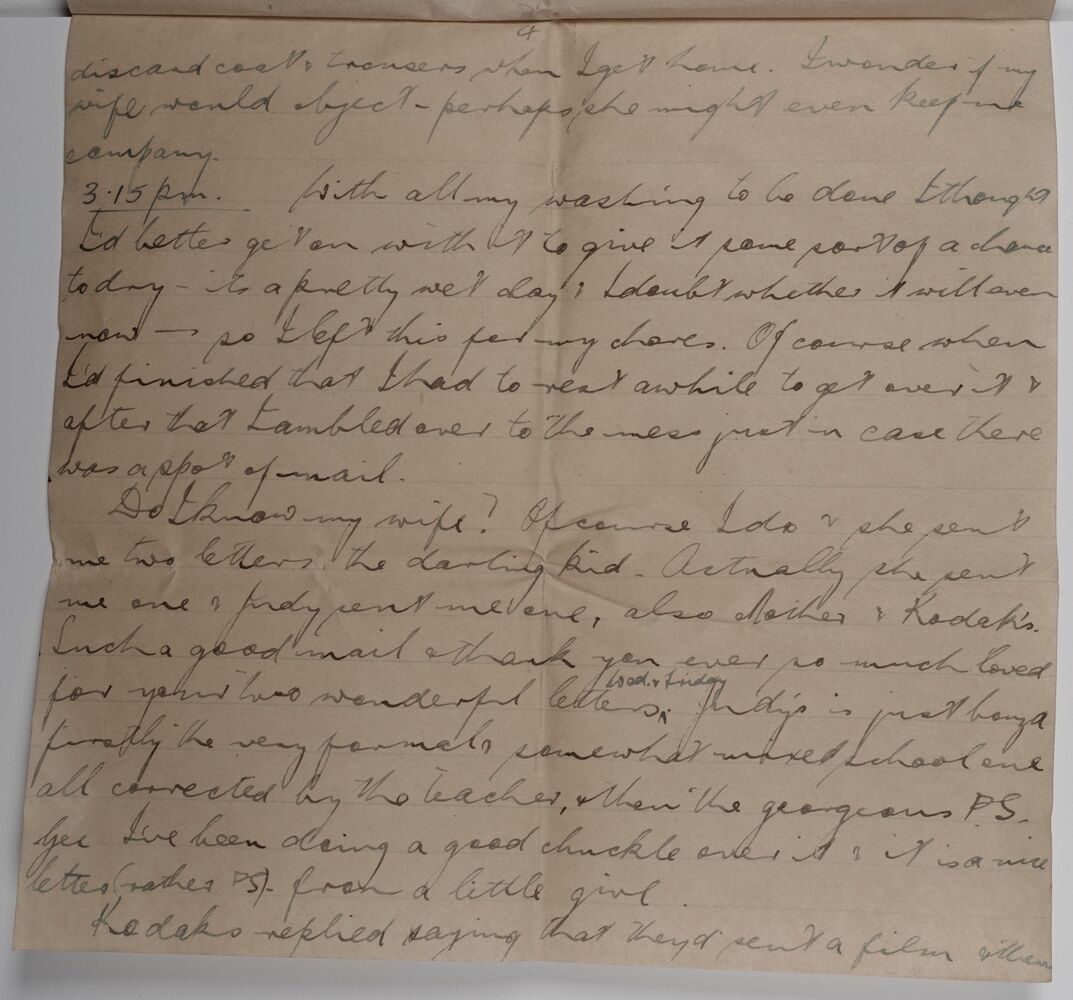 4
discard coat & trousers when I get home. I wonder if my
wife would object - perhaps she might even keep me
company.
3.15 pm. With all my washing to be done I thought
I'd better get on with it to give it some sort of a chance
to dry - its a pretty wet day & I doubt whether it will even
now - so I left this for my chores. Of course when
I'd finished that I had to rest awhile to get over it &
after that I ambled over to the mess just in case there
was a spot of mail.
Do I know my wife? Of course I do & she sent
me two letters the darling kid. Actually she sent
me one & Judy sent me one, also Mother & Kodak's.
Such a good mail & thank you ever so much loved
for your two wonderful letters. Judy's is just bonza
Wed. & Friday
firstly the very formal & somewhat mixed school one
all corrected by the teacher, & then the georgeous P.S.
Gee I've been doing a good chuckle over it & it is a nice
letter (rather PS) - from a little girl.
Kodaks replied saying that they'd sent a film & then